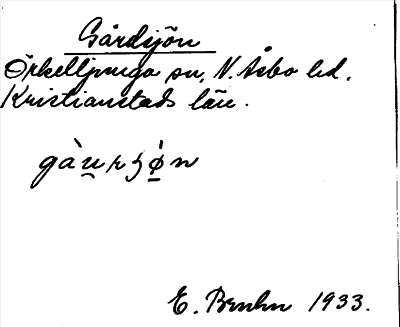 Gårdsjön
Örkelljunga sn, N. Åsbo hd.
Kristianstads län.
E. Bruhn 1933.